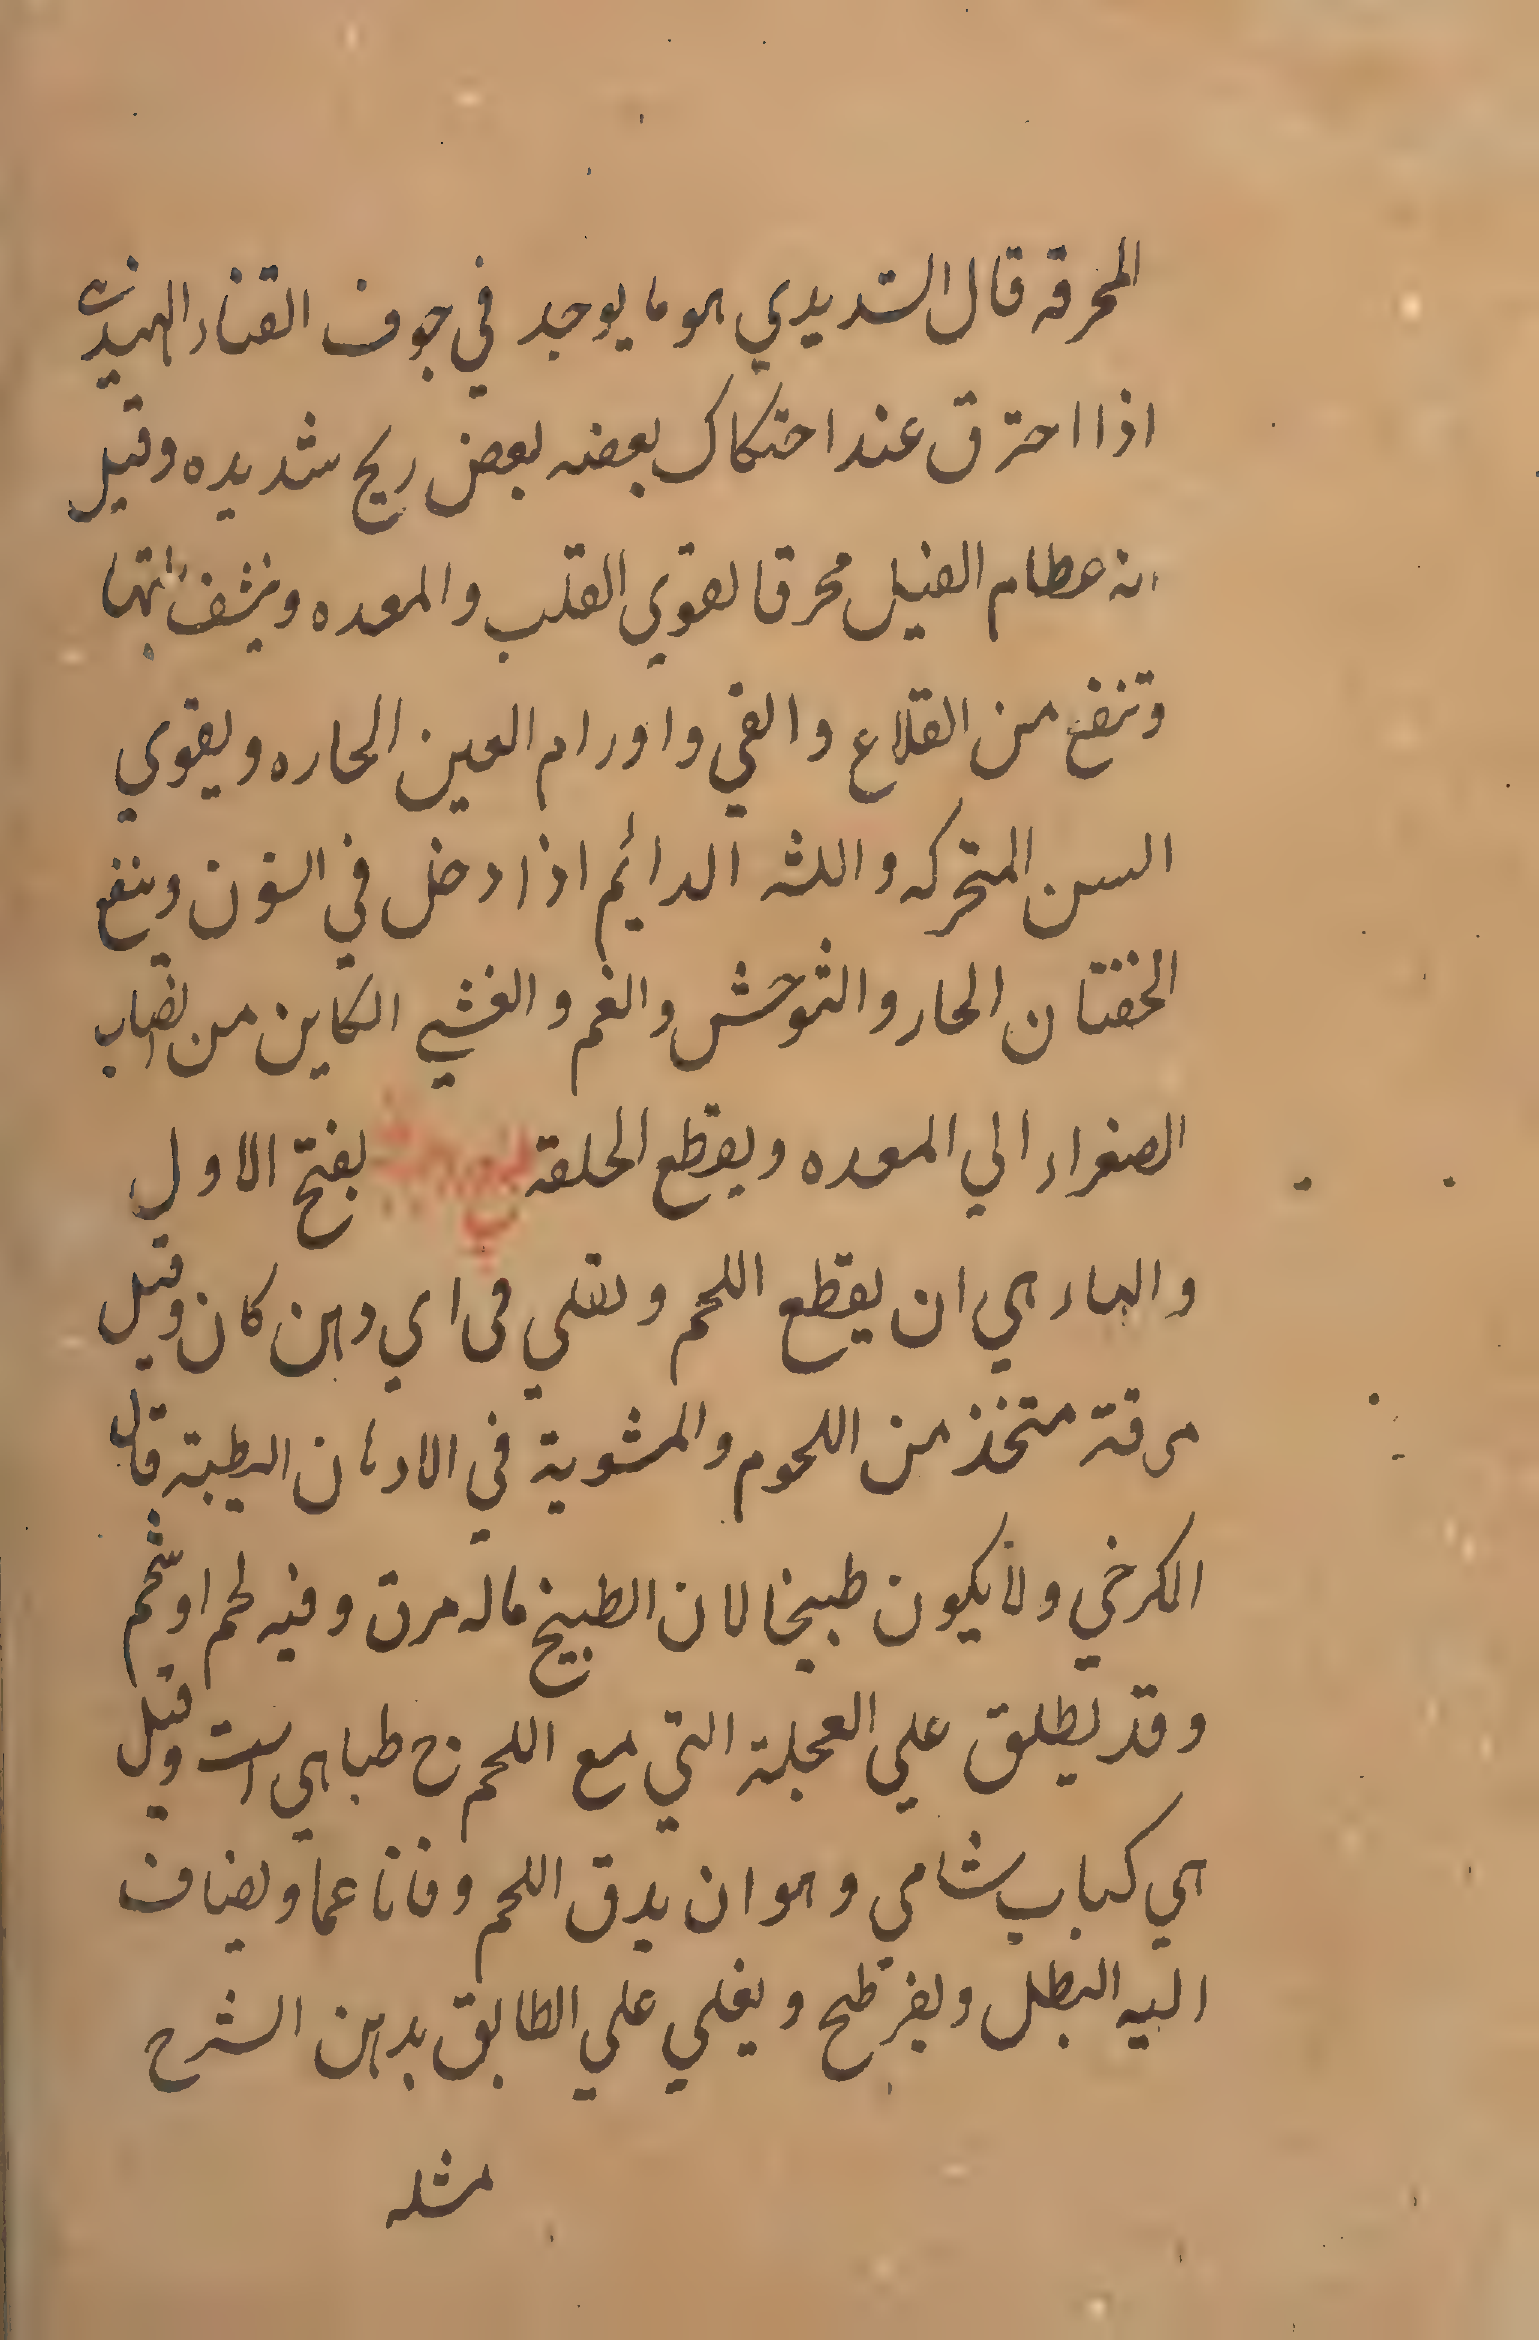 المحرقه قال السديدي هو ما يوجد في جوف القناء الهندي
اذا احترق عند احتكاك بعضه بعض ريح شديده وقيل
انه عظام الفيل محرقا يقوي القلب والمعده وينشف
وتنفع من القلاع والقي واورام العين الحاره ويقوي
السن المتحركه واللثه الدائيم اذا دخل في السنون وينفع
الخفقان الحار والتوحش والغم والغشي الكاين من انصاب
الصفراء الي المعده ويقطع الحلقة بفتح الاول
والهاء هي ان يقطع اللحم ويقلي في اي دهن كان وقيل
مرقة متخذ من اللحوم والمشوية في الادهان الطيبة قال
الكرخي ولا يكون طبيخا لان الطبيخ ماله مرق وفيه لحم او شحم
وقد يطلق علي العجلة التي مع اللحم ح طباهي است وقيل
هي كباب شامي وهو ان يدق اللحم وفانا عما ويضاف
اليه البطل ويفرطح ويغلي علي الطابق بدهن الشرح
مثله